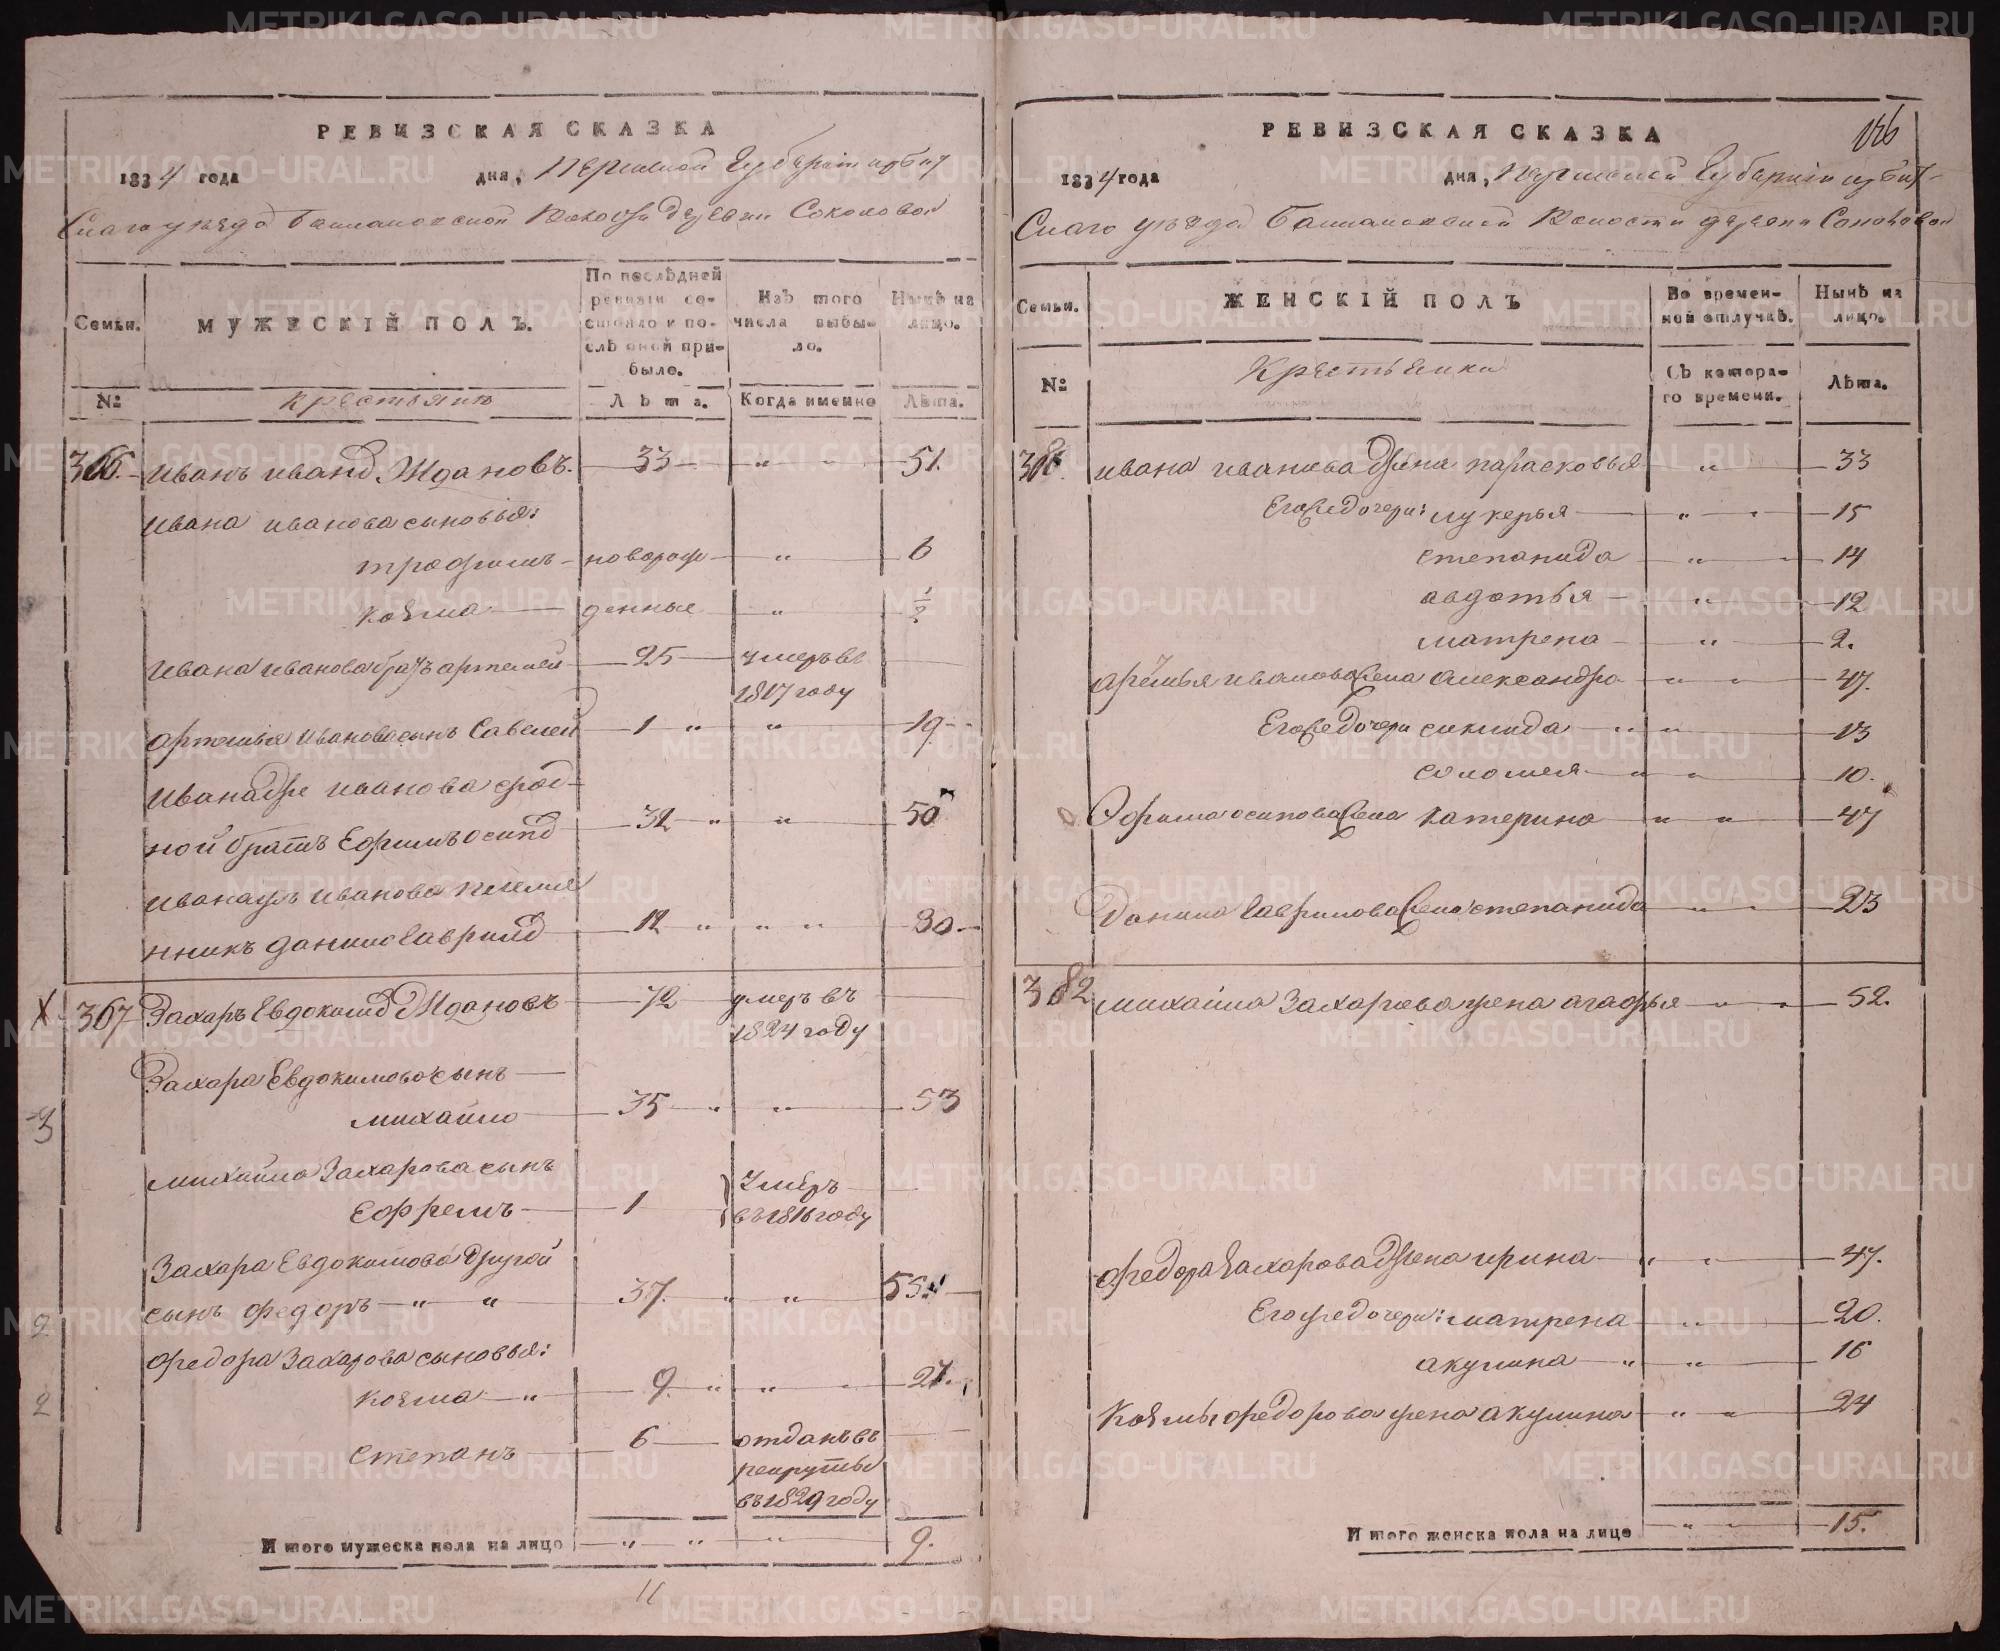 РЕВИЗСКАЯ СКАЗКА
1834 года дня, Пермской Губернии ирбит
Скаго уезда Башмаковской Волости деревни Соколовой
Семьи. МУЖЕСКІЙ ПОЛЪ. По послѣдней ревизіи состояло и послѣ оной прибыло. Изъ того числа выбыло. Нынѣ на лицо.
№ крестьянъ Лѣта. Когда именно Лѣта.
366. иванъ иванд. Ждановъ. 33 " 51.
ивана иванова сыновья:
трофимъ новорож " 6
козма денные " 1/2
ивана иванова братъ артемей 25 умеръ въ
1817 году
артемья иванова сынъ Савелей 1 " " 19
ивана же иванова срод-
ной братъ Ефимъ осипд 32 " " 50
ивана жъ иванова племя
нникъ данило Гаврилд 12 " " " 30
367 Захаръ Евдокимд Ждановъ 72 умеръ въ
1824 году
Захара Евдокимова сынъ
михайло 35 " " 53
михайла Захарова сынъ Умеръ
Ефремъ 1 въ 1816 году
Захара Евдокимова другой
сынъ федоръ " " 37. " " 55
федора Захарова сыновья:
козма " 9. " " 27.
степанъ 6 отданъ въ
рекруты
въ 1829 году
Итого мужеска пола на лицо " " " 9.
11
3
2
2
РЕВИЗСКАЯ СКАЗКА
1834 года дня, Пермской Губерніи ирбит-
Скаго уезда Башмаковской Волости деревни Соколовой
Семьи. ЖЕНСКІЙ ПОЛЪ Во временной отлучкѣ. Нынѣ на лицо.
№ Крестьянки Съ котораго времени. Лѣта.
366. ивана иванова жена парасковья " 33
Его же дочери: лукерья " " 15
степанида " " 14
авдотья " 12
матрена " 2.
артемья иванова жена александра " " 47.
Его же дочери силида " " 13
соломея " " 10.
Ефима осипова жена катерина " " 47
Данила Гаврилова жена степанида " " 23
михайла Захарова жена агафья " " 52.
федора Захарова жена ирина " " 47.
Его же дочери: матрена " 20.
акулина " " 16
Козмы федорова жена акулина " " 24
Итого женска пола на лицо " " 15.